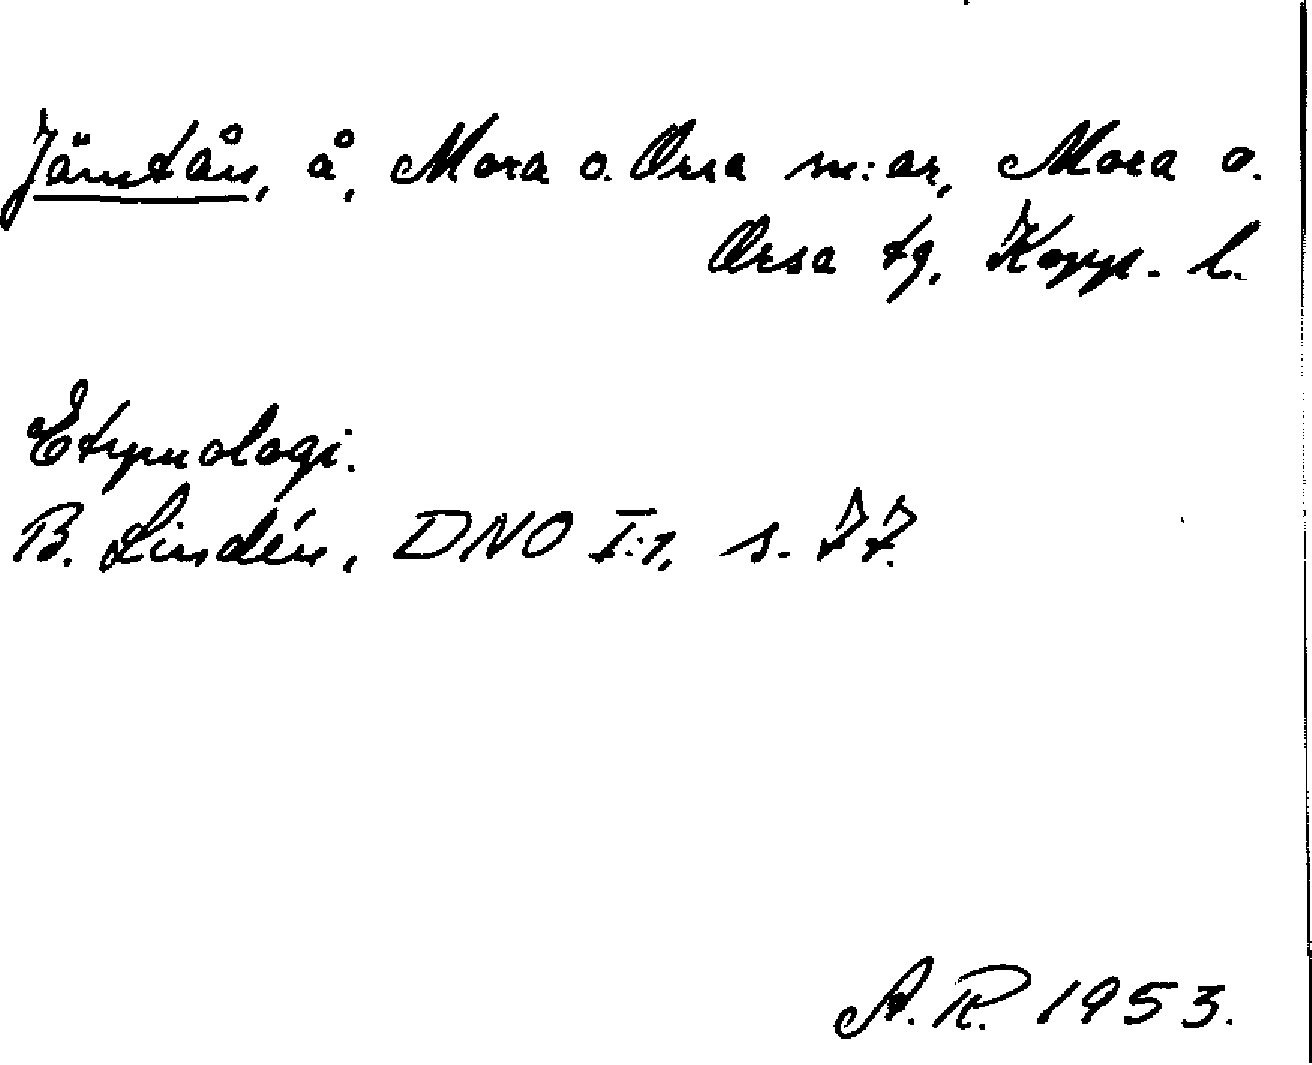 Jämtån, å, Mora o. Orsa m:ar, Mora o.
Orsa tg, Kopp. l.
Etymologi.
B. Lindén, DNO I:1, s. 77.
A. R. 1953.